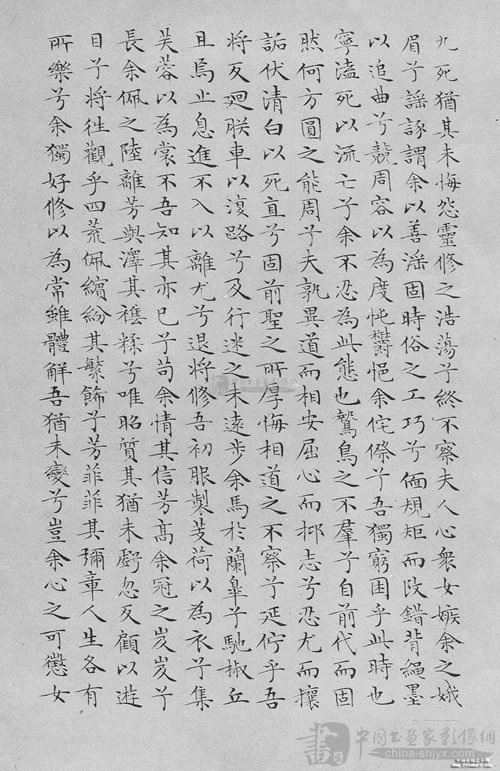 九死猶其未悔怨靈修之浩蕩兮終不察夫人心衆女嫉余之娥
眉兮謡諑謂余以善淫固時俗之工巧兮偭規矩而改錯背繩墨
以追曲兮競周容以為度忳鬱悒余侘傺兮吾獨窮困乎此時也
寧溘死以流亡兮余不忍為此態也鷙鳥之不羣兮自前代而固
然何方圓之能周兮夫孰異道而相安屈心而抑志兮忍尤而攘
詬伏清白以死直兮固前聖之所厚悔相道之不察兮延佇乎吾
將反迴朕車以復路兮及行迷之未遠步余馬於蘭臯兮馳椒丘
且焉止息進不入以離尤兮退將修吾初服製芰荷以為衣兮集
芙蓉以為裳不吾知其亦已兮苟余情其信芳髙余冠之岌岌兮
長余佩之陸離芳與澤其雜糅兮唯昭質其猶未虧忽反顧以遊
目兮將往觀乎四荒佩繽紛其繁飾兮芳菲菲其彌章人生各有
所樂兮余獨好修以為常雖體解吾猶未變兮豈余心之可懲女
中國書畫家影像網
china-shjyx.com